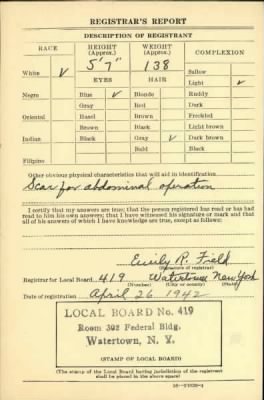 REGISTRAR'S REPORT
DESCRIPTION OF REGISTRANT
RACE HEIGHT (Approx.) WEIGHT (Approx.) COMPLEXION
5'7" 138 Sallow
White ✓ EYES HAIR Light ✓
Negro Blue ✓ Blonde Ruddy
Gray Red Dark
Oriental Hazel Brown Freckled
Brown Black Light brown
Indian Black Gray ✓ Dark brown
Bald Black
Filipino
Other obvious physical characteristics that will aid in identification
Scar for abdominal operation
I certify that my answers are true; that the person registered has read or has had
read to him his own answers; that I have witnessed his signature or mark and that
all of his answers of which I have knowledge are true, except as follows:
Emily R. Field
(Signature of registrar)
Registrar for Local Board 419 Watertown New York
(Number) (City or county) (State)
Date of registration April 26 1942
LOCAL BOARD No. 419
Room 302 Federal Bldg.
Watertown, N. Y.
(STAMP OF LOCAL BOARD)
(The stamp of the Local Board having jurisdiction of the registrant
shall be placed in the above space)